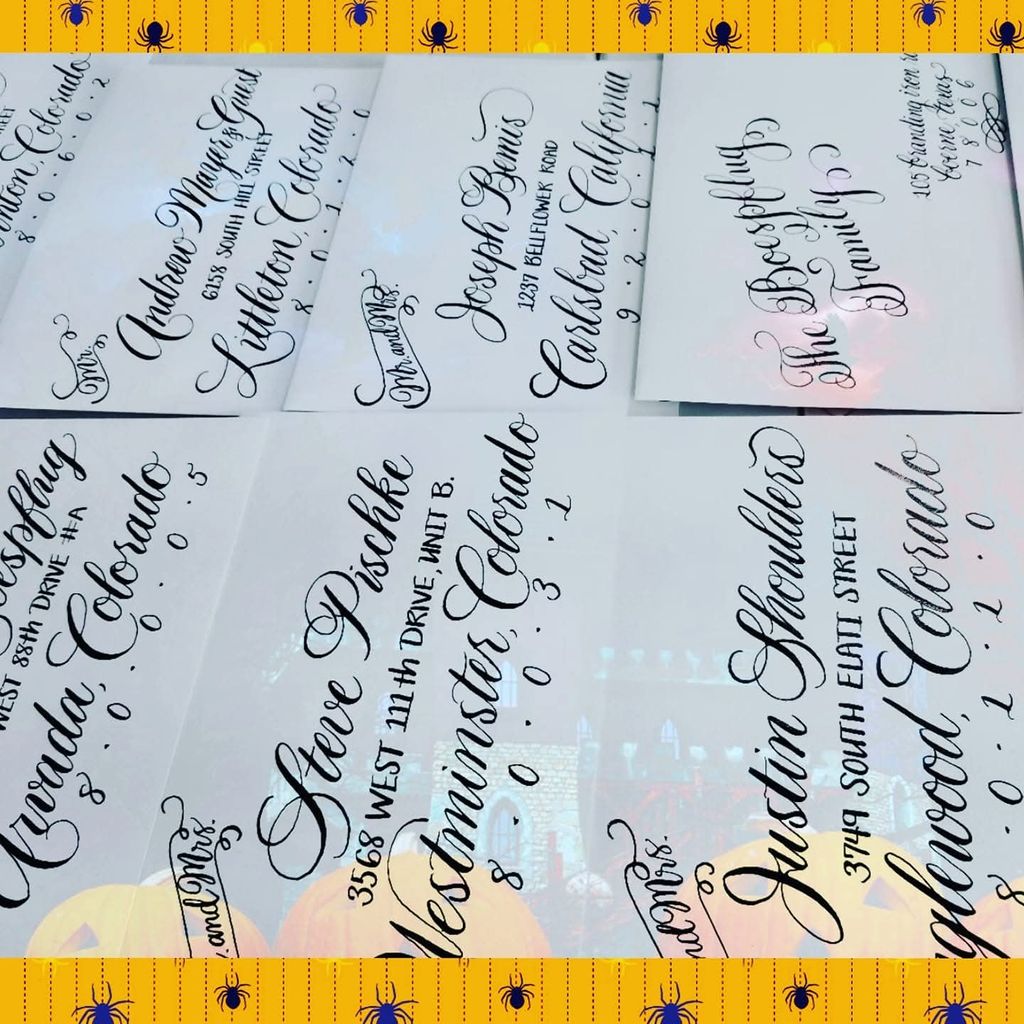 Colorado
8 · 0 · 6 · 0 · 2
Mr.
Andrew Mayer & Guest
6158 SOUTH HILL STREET
Littleton, Colorado
8 · 0 · 1 · 2 ·
Mr. and Mrs.
Joseph Bemis
1237 BELLFLOWER ROAD
Carlsbad, California
9 · 2 · 0 · 1 · 1
The Boespflug
Family
105 branding iron
boerne, texas
7 8 0 0 6
WEST 88th DRIVE #A
Arvada, Colorado
8 · 0 · 0 · 0 · 5
. and Mrs.
Steve Pischke
3568 WEST 111th DRIVE, UNIT B.
Westminster, Colorado
8 · 0 · 0 · 3 · 1
and Mrs.
Justin Shoulders
3749 SOUTH ELATI STREET
glewood, Colorado
8 · 0 · 1 · 1 · 0